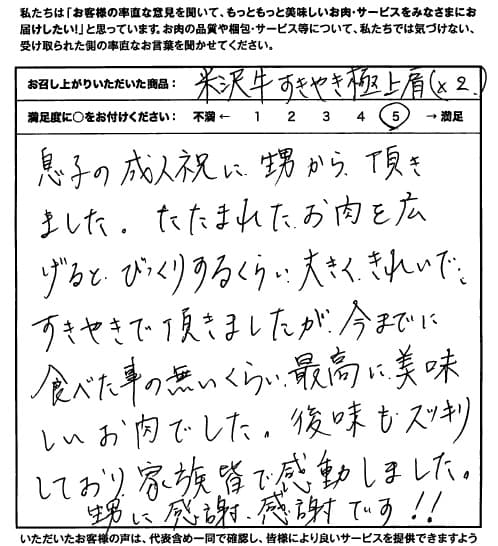 私たちは「お客様の率直な意見を聞いて、もっともっと美味しいお肉・サービスをみなさまにお
届けしたい!」と思っています。お肉の品質や梱包・サービス等について、私たちでは気づけない、
受け取られた側の率直なお言葉を聞かせてください。
お召し上がりいただいた商品: 米沢牛すきやき極上肩(×2.)
満足度に○をお付けください: 不満 ← 1 2 3 4 5 → 満足
息子の成人祝に、甥から、頂き
ました。たたまれた、お肉を広
げると、びっくりするくらい、大きく、きれいで、
すきやきで頂きましたが、今までに
食べた事の無いくらい、最高に、美味
しいお肉でした。後味もスッキリ
しており、家族皆で感動しました。
甥に感謝、感謝です!!
いただいたお客様の声は、代表含め一同で確認し、皆様により良いサービスを提供できますよう